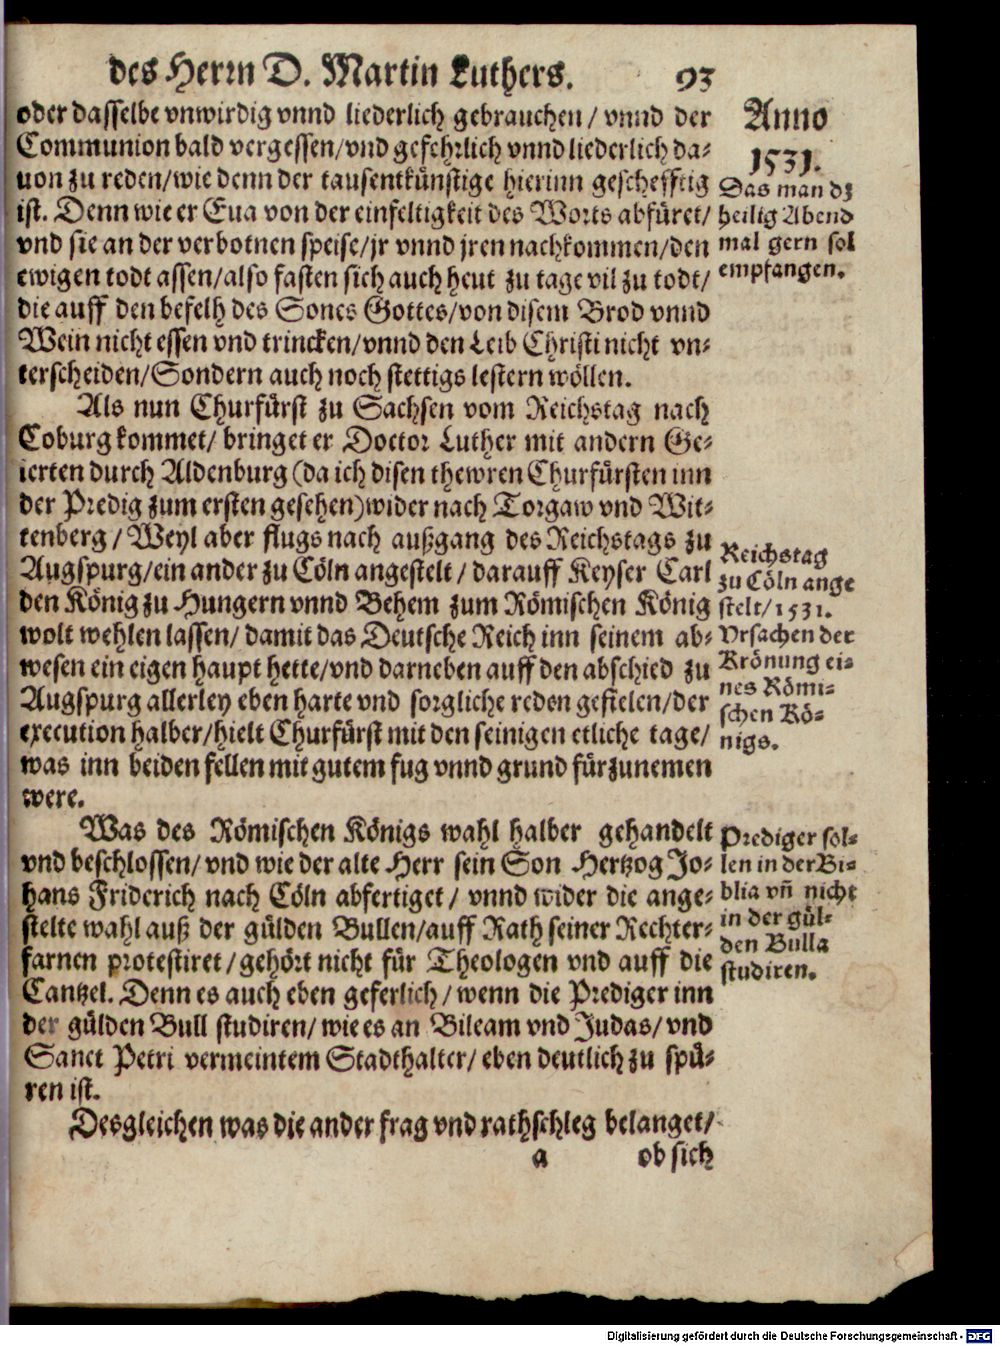 des Herrn D. Martin Luthers. 93
oder dasselbe vnwirdig vnnd liederlich gebrauchen / vnnd der
Communion bald vergessen/vnd gefehrlich vnnd liederlich da-
uon zu reden/wie denn der tausentkünstige hierinn gescheffttig
ist. Denn wie er Eua von der einfeltigkeit des Worts abfüret/
vnd sie an der verbotnen speise/jr vnnd jren nachkommen/den
ewigen todt assen/also fasten sich auch heut zu tage vil zu todt/
die auff den befelh des Sones Gottes/von disem Brod vnnd
Wein nicht essen vnd trincken/vnnd den Leib Christi nicht vn-
terscheiden/Sondern auch noch stettigs lestern wöllen.
Als nun Churfürst zu Sachsen vom Reichstag nach
Coburg kommet/ bringet er Doctor Luther mit andern Ge-
lerten durch Aldenburg (da ich disen thewren Churfürsten inn
der Predig zum ersten gesehen) wider nach Torgaw vnd Wit-
tenberg / Weyl aber flugs nach außgang des Reichstags zu
Augspurg/ein ander zu Cöln angestelt / darauff Keyser Carl
den König zu Hungern vnnd Behem zum Römischen König
wolt wehlen lassen/ damit das Deutsche Reich inn seinem ab-
wesen ein eigen haupt hette/vnd darneben auff den abschied zu
Augspurg allerley eben harte vnd sorgliche reden gefielen/der
execution halber/hielt Churfürst mit den seinigen etliche tage/
was inn beiden fellen mit gutem fug vnnd grund fürzunemen
were.
Was des Römischen Königs wahl halber gehandelt
vnd beschlossen/ vnd wie der alte Herr sein Son Hertzog Jo-
hans Friderich nach Cöln abfertiget / vnnd wider die ange-
stelte wahl auß der gülden Bullen/auff Rath seiner Rechter-
farnen protestiret / gehört nicht für Theologen vnd auff die
Cantzel. Denn es auch eben geferlich / wenn die Prediger inn
der gülden Bull studiren/ wie es an Bileam vnd Judas/ vnd
Sanct Petri vermeintem Stadthalter/ eben deutlich zu spü-
ren ist.
Desgleichen was die ander frag vnd rathschleg belanget/
a ob sich
Anno
1531.
Das man dz
heilig Abend
mal gern sol
empfangen.
Reichstag
zu Cöln ange
stelt/1531.
Vrsachen der
Krönung ei-
nes Römi-
schen Kö-
nigs.
Prediger sol-
len in der Bi-
blia vn̄ nicht
in der gül-
den Bulla
studiren.
Digitalisierung gefördert durch die Deutsche Forschungsgemeinschaft - DFG